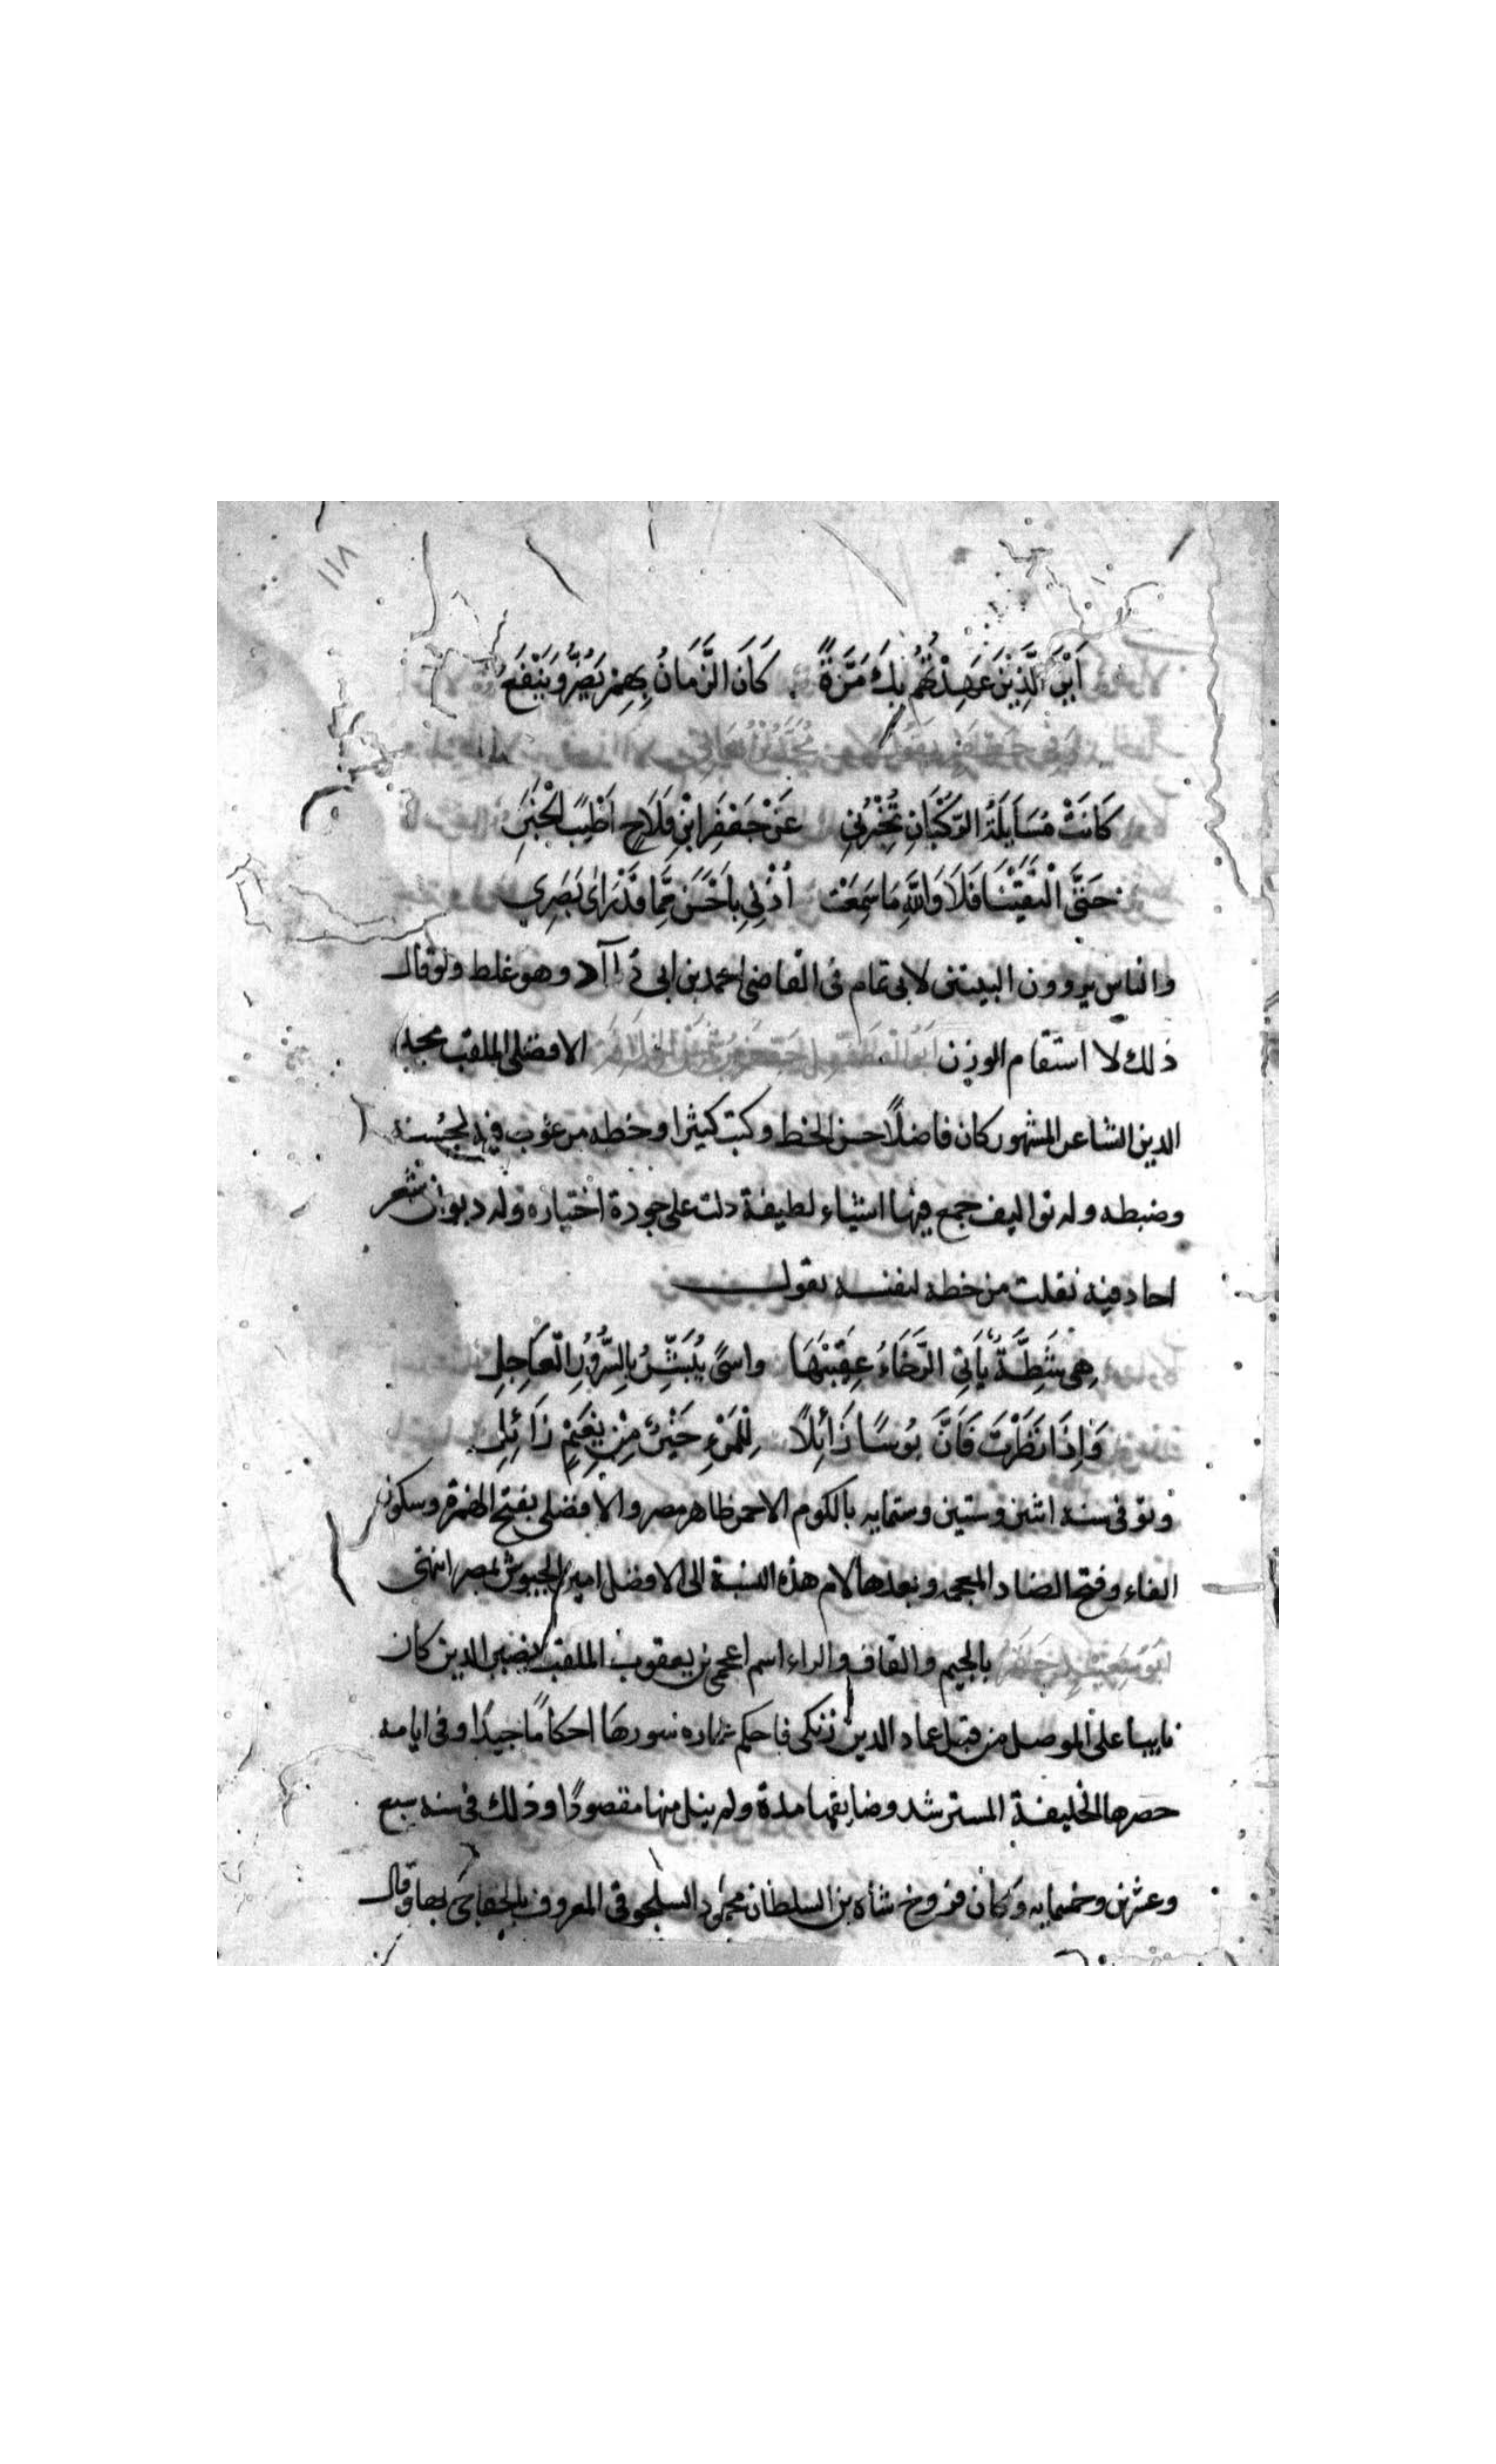 ١١٨
اَيْنَ الَّذِيْنَ عَهِدْتُهُمْ بِكَ مَرَّةً كَانَ الزَّمَانُ بِهِمْ يَضُرُّ وَيَنْفَعُ
كَانَتْ مُسَايَلَةُ الرُّكْبَانِ تُخْبِرُنِي عَنْ جَعْفَرِ ابْنِ فَلَاحٍ اَطْيَبَ الْخَبَرِ
حَتَّى الْتَقَيْنَا فَلَا وَاللَّهِ مَا سَمِعَتْ اُذْنِي بِاَحْسَنَ مِمَّا قَدْ رَاَى بَصَرِي
والناس يروون البيتين لابى تمام فى القاضى احمد بن ابى دآاد وهو غلط ولو قال
ذلك لا استقام الوزن الافضلى الملقب مجد
الدين الشاعر المشهور كان فاضلاً حسن الخط وكتب كثيرا وخطه مرغوب فيه لحسنه
وضبطه وله تواليف جمع فيها اشياء لطيفة دلت على جودة اختياره وله ديوان شعر
اجاد فيه نقلت من خطه لنفسه يقول
هِى شِدَّةٌ يَاتِي الرَّخَاءُ عقيبَهَا واسًى يُبَشِّرُ بِالسُّرُوْرِ الْعَاجِلِ
وَاِذَا نَظَرْتَ فَاَنَّ بُوْسًا زَائِلًا لِلْمَرْءِ خَيْرٌ مِنْ نَعِيْمٍ زَائِلِ
وتوفى سنه اثنين وستين وستمايه بالكوم الاحمر ظاهر مصر والافضلى بفتح الهمزة وسكون
الفاء وفتح الضاد المعجمه وبعدها لام هذه النسبة الى الافضل امير الجيوش بمصر انتهى
بالجيم والقاف والراء اسم اعجمى بن يعقوب الملقب بنصير الدين كان
نايبا على الموصل من قبل عماد الدين زنكى فاحكم سورها احكامًا جيدًا وفى ايامه
حصرها الخليفة المسترشد وضايقها مدة ولم ينل منها مقصودًا وذلك فى سنه سبع
وعشرين وخمسمايه وكان فروخ شاه بن السلطان محمود السلجوقى المعروف بالخفاجى